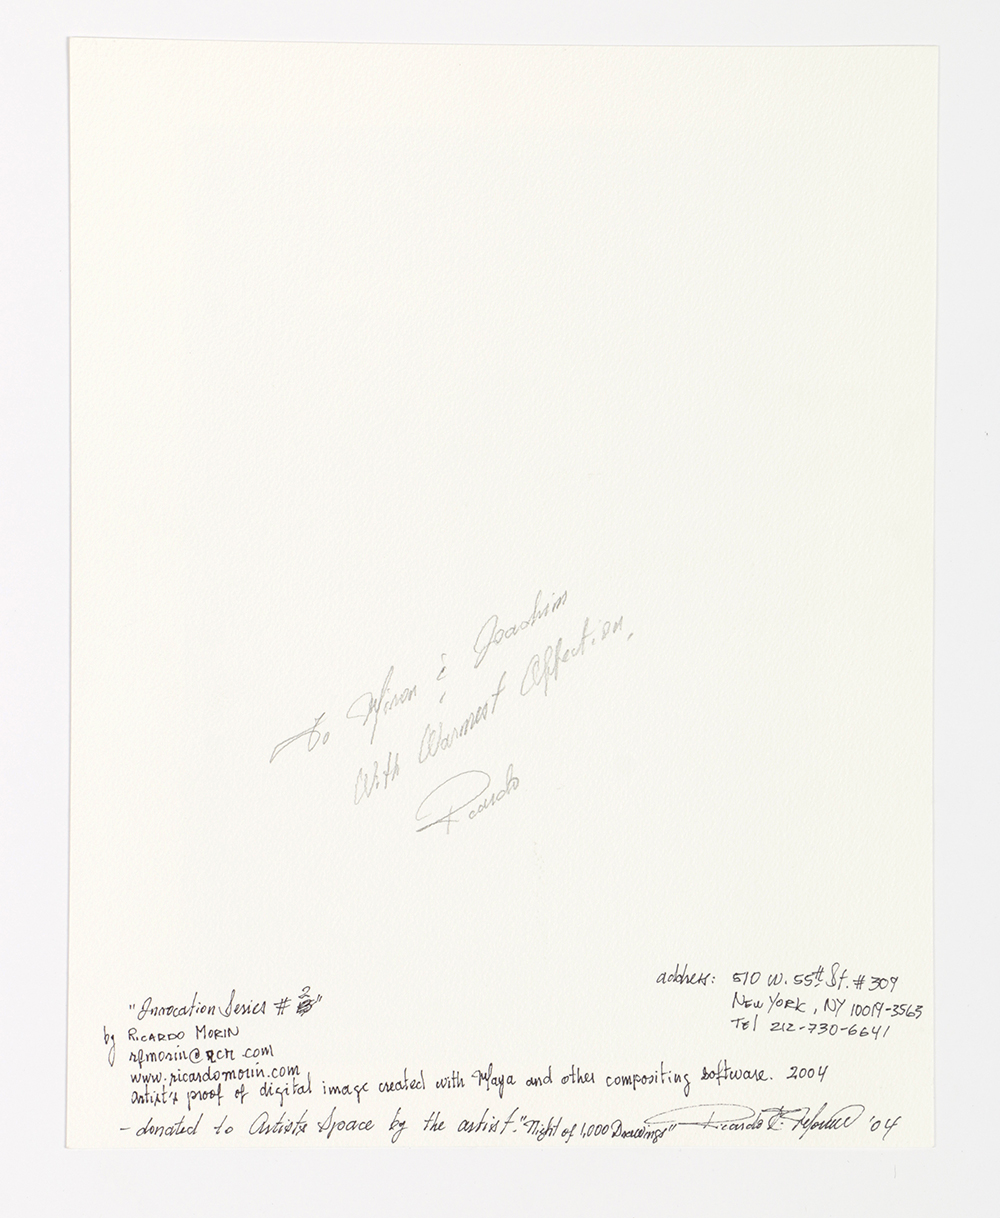 To Miron & Joachim
With Warmest Affection,
Ricardo
address: 510 W. 55th St. # 309
New York, NY 10019-3563
Tel 212-730-6641
"Innocation Series # 2"
by Ricardo Morin
rfmorin@rcn.com
www.ricardomorin.com
artist's proof of digital image created with Maya and other compositing software. 2004
- donated to Artists Space by the artist. "Night of 1,000 Drawings" Ricardo F. Morin '04